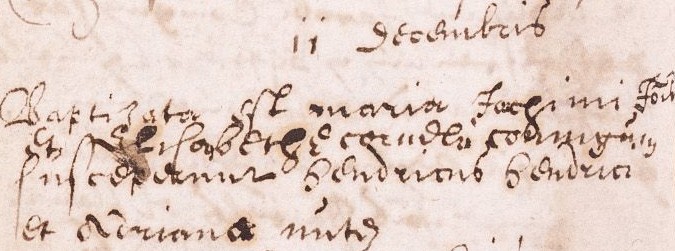 ii decembris
Baptizata est maria Jochimi
et Elisabethe conjugum
susceperunt hendricus hendrici
et Adriana